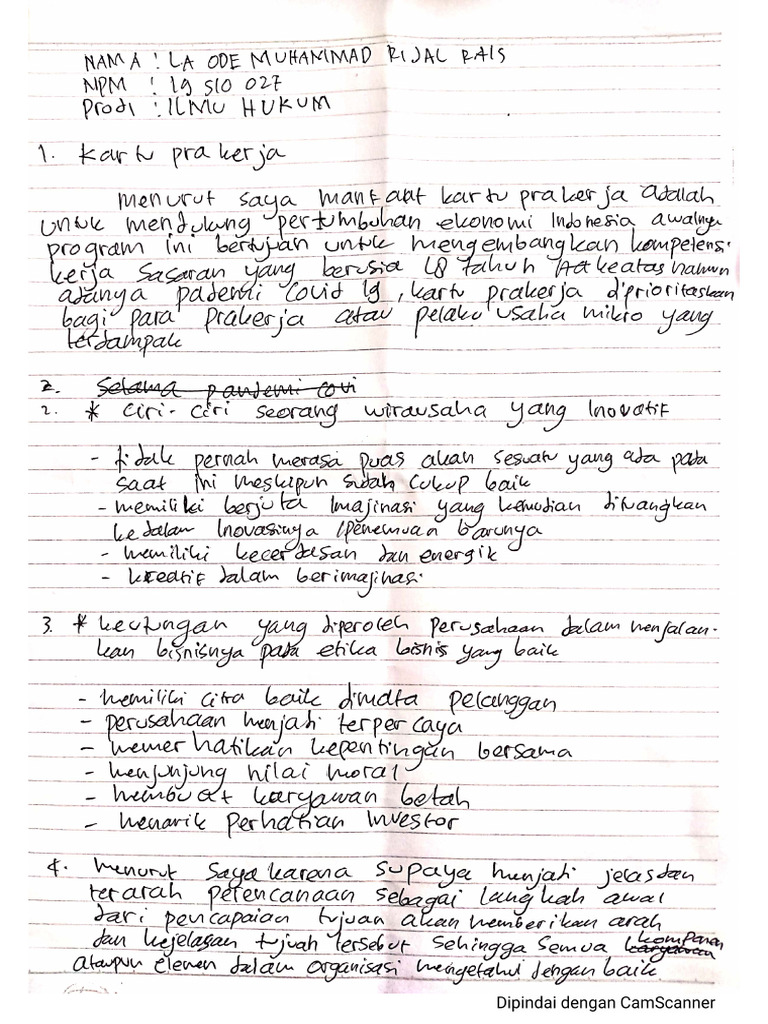 NAMA : LA ODE MUHAMMAD RIJAL RAIS
NPM : 19 510 027
Prodi : ILMU HUKUM
1. Kartu prakerja
menurut saya manfaat kartu prakerja adalah
untuk mendukung pertumbuhan ekonomi Indonesia awalnya
program ini bertujuan untuk mengembangkan kompetensi
kerja sasaran yang berusia 18 tahun keatas namun
adanya pademi Covid 19, kartu prakerja diprioritaskan
bagi para prakerja atau pelaku usaha mikro yang
terdampak
2. Selama pandemi covi
2. * Ciri-Ciri seorang wirausaha yang Inovatif
- tidak pernah merasa puas akan sesuatu yang ada pada
saat ini meskipun sudah cukup baik
- memiliki berjuta Imajinasi yang kemudian dituangkan
kedalam Inovasinya /penemuan barunya
- memiliki kecerdasan dan energik
- kreatif dalam berimajinasi
3. * keutungan yang diperoleh perusahaan dalam menjalan-
kan bisnisnya pada etika bisnis yang baik
- memiliki citra baik dimata pelanggan
- perusahaan menjadi terpercaya
- memerhatikan kepentingan bersama
- menjunjung nilai moral
- membuat karyawan betah
- menarik perhatian Investor
4. menurut saya karena supaya menjadi jelas dan
terarah perencanaan sebagai langkah awal
dari pencapaian tujuan akan memberikan arah
dan kejelasan tujuan tersebut sehingga semua karyawan
ataupun elemen dalam organisasi mengetahui dengan baik
Dipindai dengan CamScanner